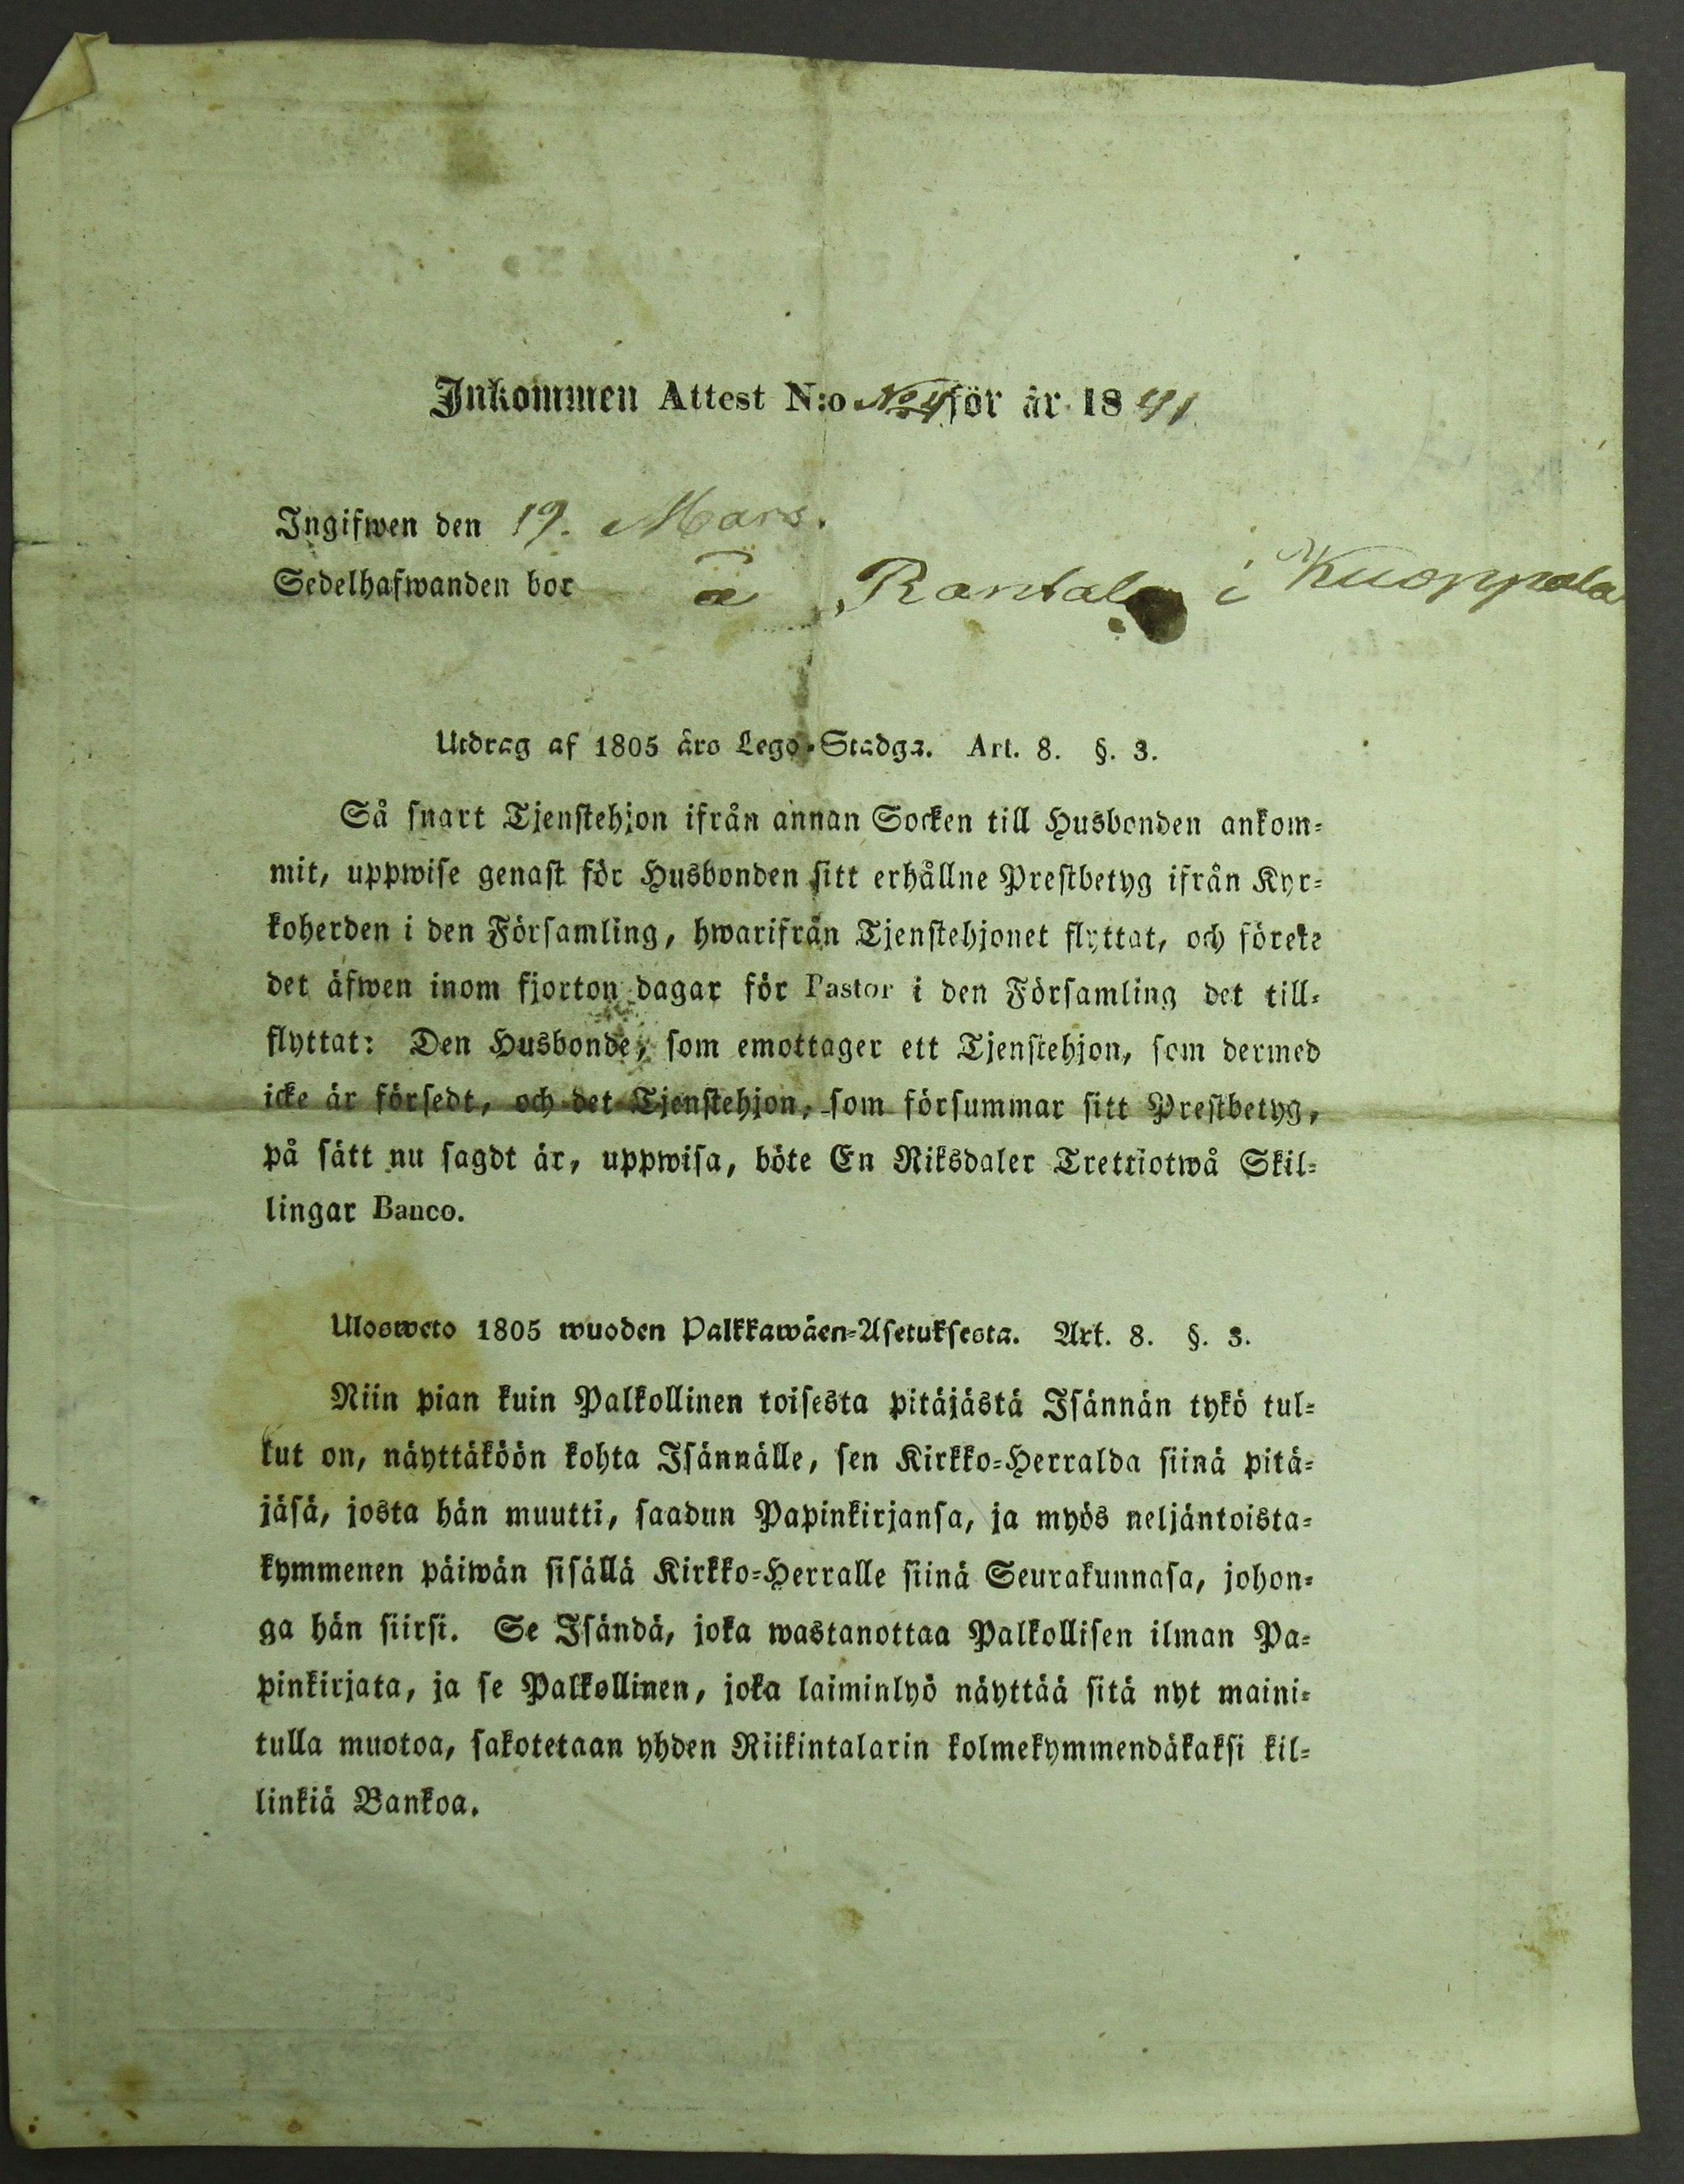 Inkommen Attest N:o No 4 för år 1841
Ingifwen den 19. Mars.
Sedelhafwanden bor å Rantala i Kuoppala
Utdrag af 1805 års Lego-Stadga. Art. 8. §. 3.
Så snart Tjenstehjon ifrån annan Socken till Husbonden ankom=
mit, uppwise genast för Husbonden sitt erhållne Prestbetyg ifrån Kyr=
koherden i den Församling, hwarifrån Tjenstehjonet flyttat, och förete
det äfwen inom fjorton dagar för Pastor i den Församling det till=
flyttat: Den Husbonde, som emottager ett Tjenstehjon, som dermed
icke är försedt, och det Tjenstehjon, som försummar sitt Prestbetyg,
på sätt nu sagdt är, uppwisa, böte En Riksdaler Trettiotwå Skil=
lingar Banco.
Ulosweto 1805 wuoden Palkkawäen=Asetuksesta. Art. 8. §. 3.
Niin pian kuin Palkollinen toisesta pitäjästä Isännän tykö tul=
lut on, näyttäköön kohta Isännälle, sen Kirkko=Herralda siinä pitä=
jäsä, josta hän muutti, saadun Papinkirjansa, ja myös neljäntoista=
kymmenen päiwän sisällä Kirkko=Herralle siinä Seurakunnasa, johon=
ga hän siirsi. Se Isändä, joka wastanottaa Palkollisen ilman Pa=
pinkirjata, ja se Palkollinen, joka laiminlyö näyttää sitä nyt maini=
tulla muotoa, sakotetaan yhden Riikintalarin kolmekymmendäkaksi kil=
linkiä Bankoa.